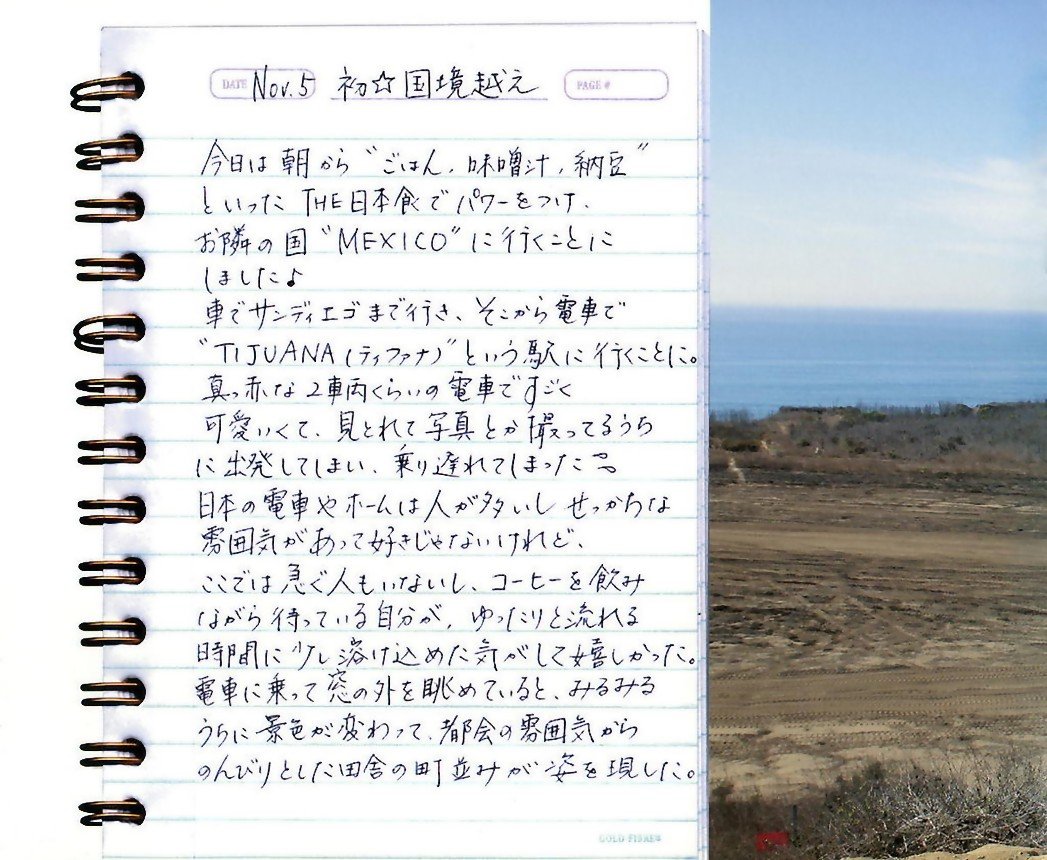 DATE Nov. 5 初☆国境越え PAGE #
今日は朝から"ごはん、味噌汁、納豆"
といった THE日本食でパワーをつけ、
お隣の国"MEXICO"に行くことに
しました♪
車でサンディエゴまで行き、そこから電車で
"TIJUANA (ティファナ)"という駅に行くことに。
真っ赤な2車両くらいの電車ですごく
可愛いくて、見とれて写真とか撮ってるうち
に出発してしまい、乗り遅れてしまった
日本の電車やホームは人が多いしせっかちな
雰囲気があって好きじゃないけれど、
ここでは急ぐ人もいないし、コーヒーを飲み
ながら待っている自分が、ゆったりと流れる
時間に少し溶け込めた気がして嬉しかった。
電車に乗って窓の外を眺めていると、みるみる
うちに景色が変わって、都会の雰囲気から
のんびりとした田舎の町並みが姿を現した。